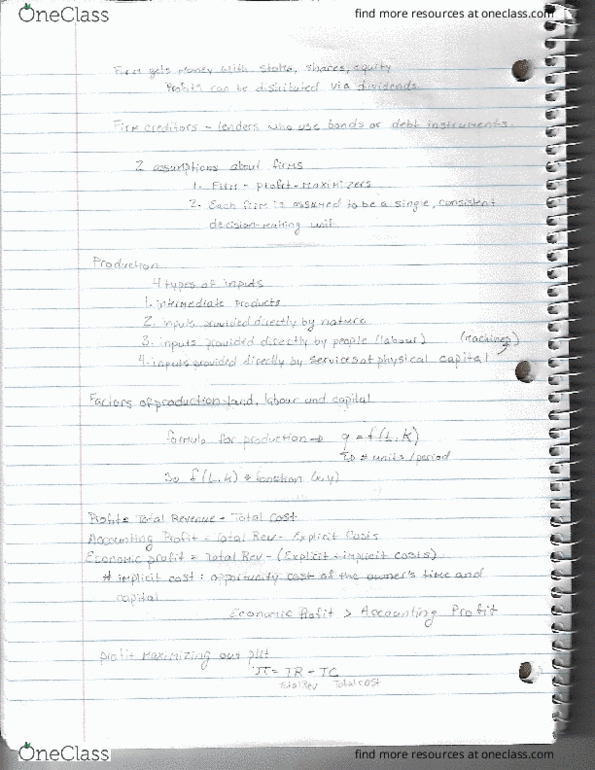 OneClass
find more resources at oneclass.com
Firm gets money with stocks, shares, equity
Profits can be distributed via dividends
Firm creditors - lenders who use bonds or debt instruments.
2 assumptions about firms
1. Firm - profit-maximizers
2. Each firm is assumed to be a single, consistent
decision-making unit.
Production
4 types of inputs
1. intermediate products
2. inputs provided directly by nature
3. inputs provided directly by people (labour)
(machines)
4. inputs provided directly by services of physical capital
Factors of production: land, labour and capital
formula for production → q = f(L, K)
# units/period
So f(L,K) function (x,y)
Profit = Total Revenue - Total Cost
Accounting Profit = Total Rev - Explicit Costs
Economic profit = Total Rev - (Explicit + implicit costs)
# implicit cost: opportunity cost of the owner's time and
capital
Economic Profit > Accounting Profit
profit maximizing out put
π = TR - TC
Total Rev Total cost
OneClass
find more resources at oneclass.com